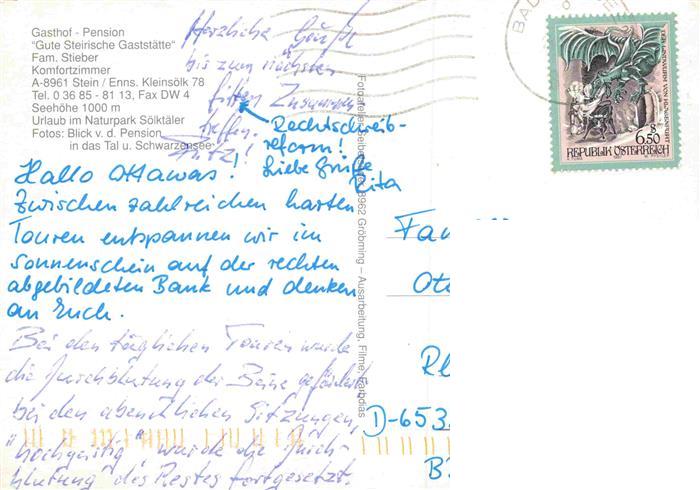 Gasthof - Pension
"Gute Steirische Gaststätte"
Fam. Stieber
Komfortzimmer
A-8961 Stein / Enns. Kleinsölk 78
Tel. 0 36 85 - 81 13, Fax DW 4
Seehöhe 1000 m
Urlaub im Naturpark Sölktäler
Fotos: Blick v. d. Pension
in das Tal u. Schwarzensee
Herzliche Grüße
bis zum nächsten
fitten Zusammen
treffen.
Fritz!
Rechtschreib-
reform!
Liebe Grüße
Rita
Hallo Ottawas!
Zwischen zahlreichen harten
Touren entspannen wir im
Sonnenschein auf der rechten
abgebildeten Bank und denken
an Euch.
Bei den täglichen Touren wurde
die Durchblutung der Beine gefördert
bei den abendlichen Sitzungen,
"hochgeistig", wurde die Durch-
blutung des Restes fortgesetzt.
8962 Gröbming – Ausarbeitung, Filme, Farbdias
BAD
DER LINDWURM VON KLAGENFURT
S 6,50
REPUBLIK ÖSTERREICH
1997
Fa
Ott
Re
D-653
B